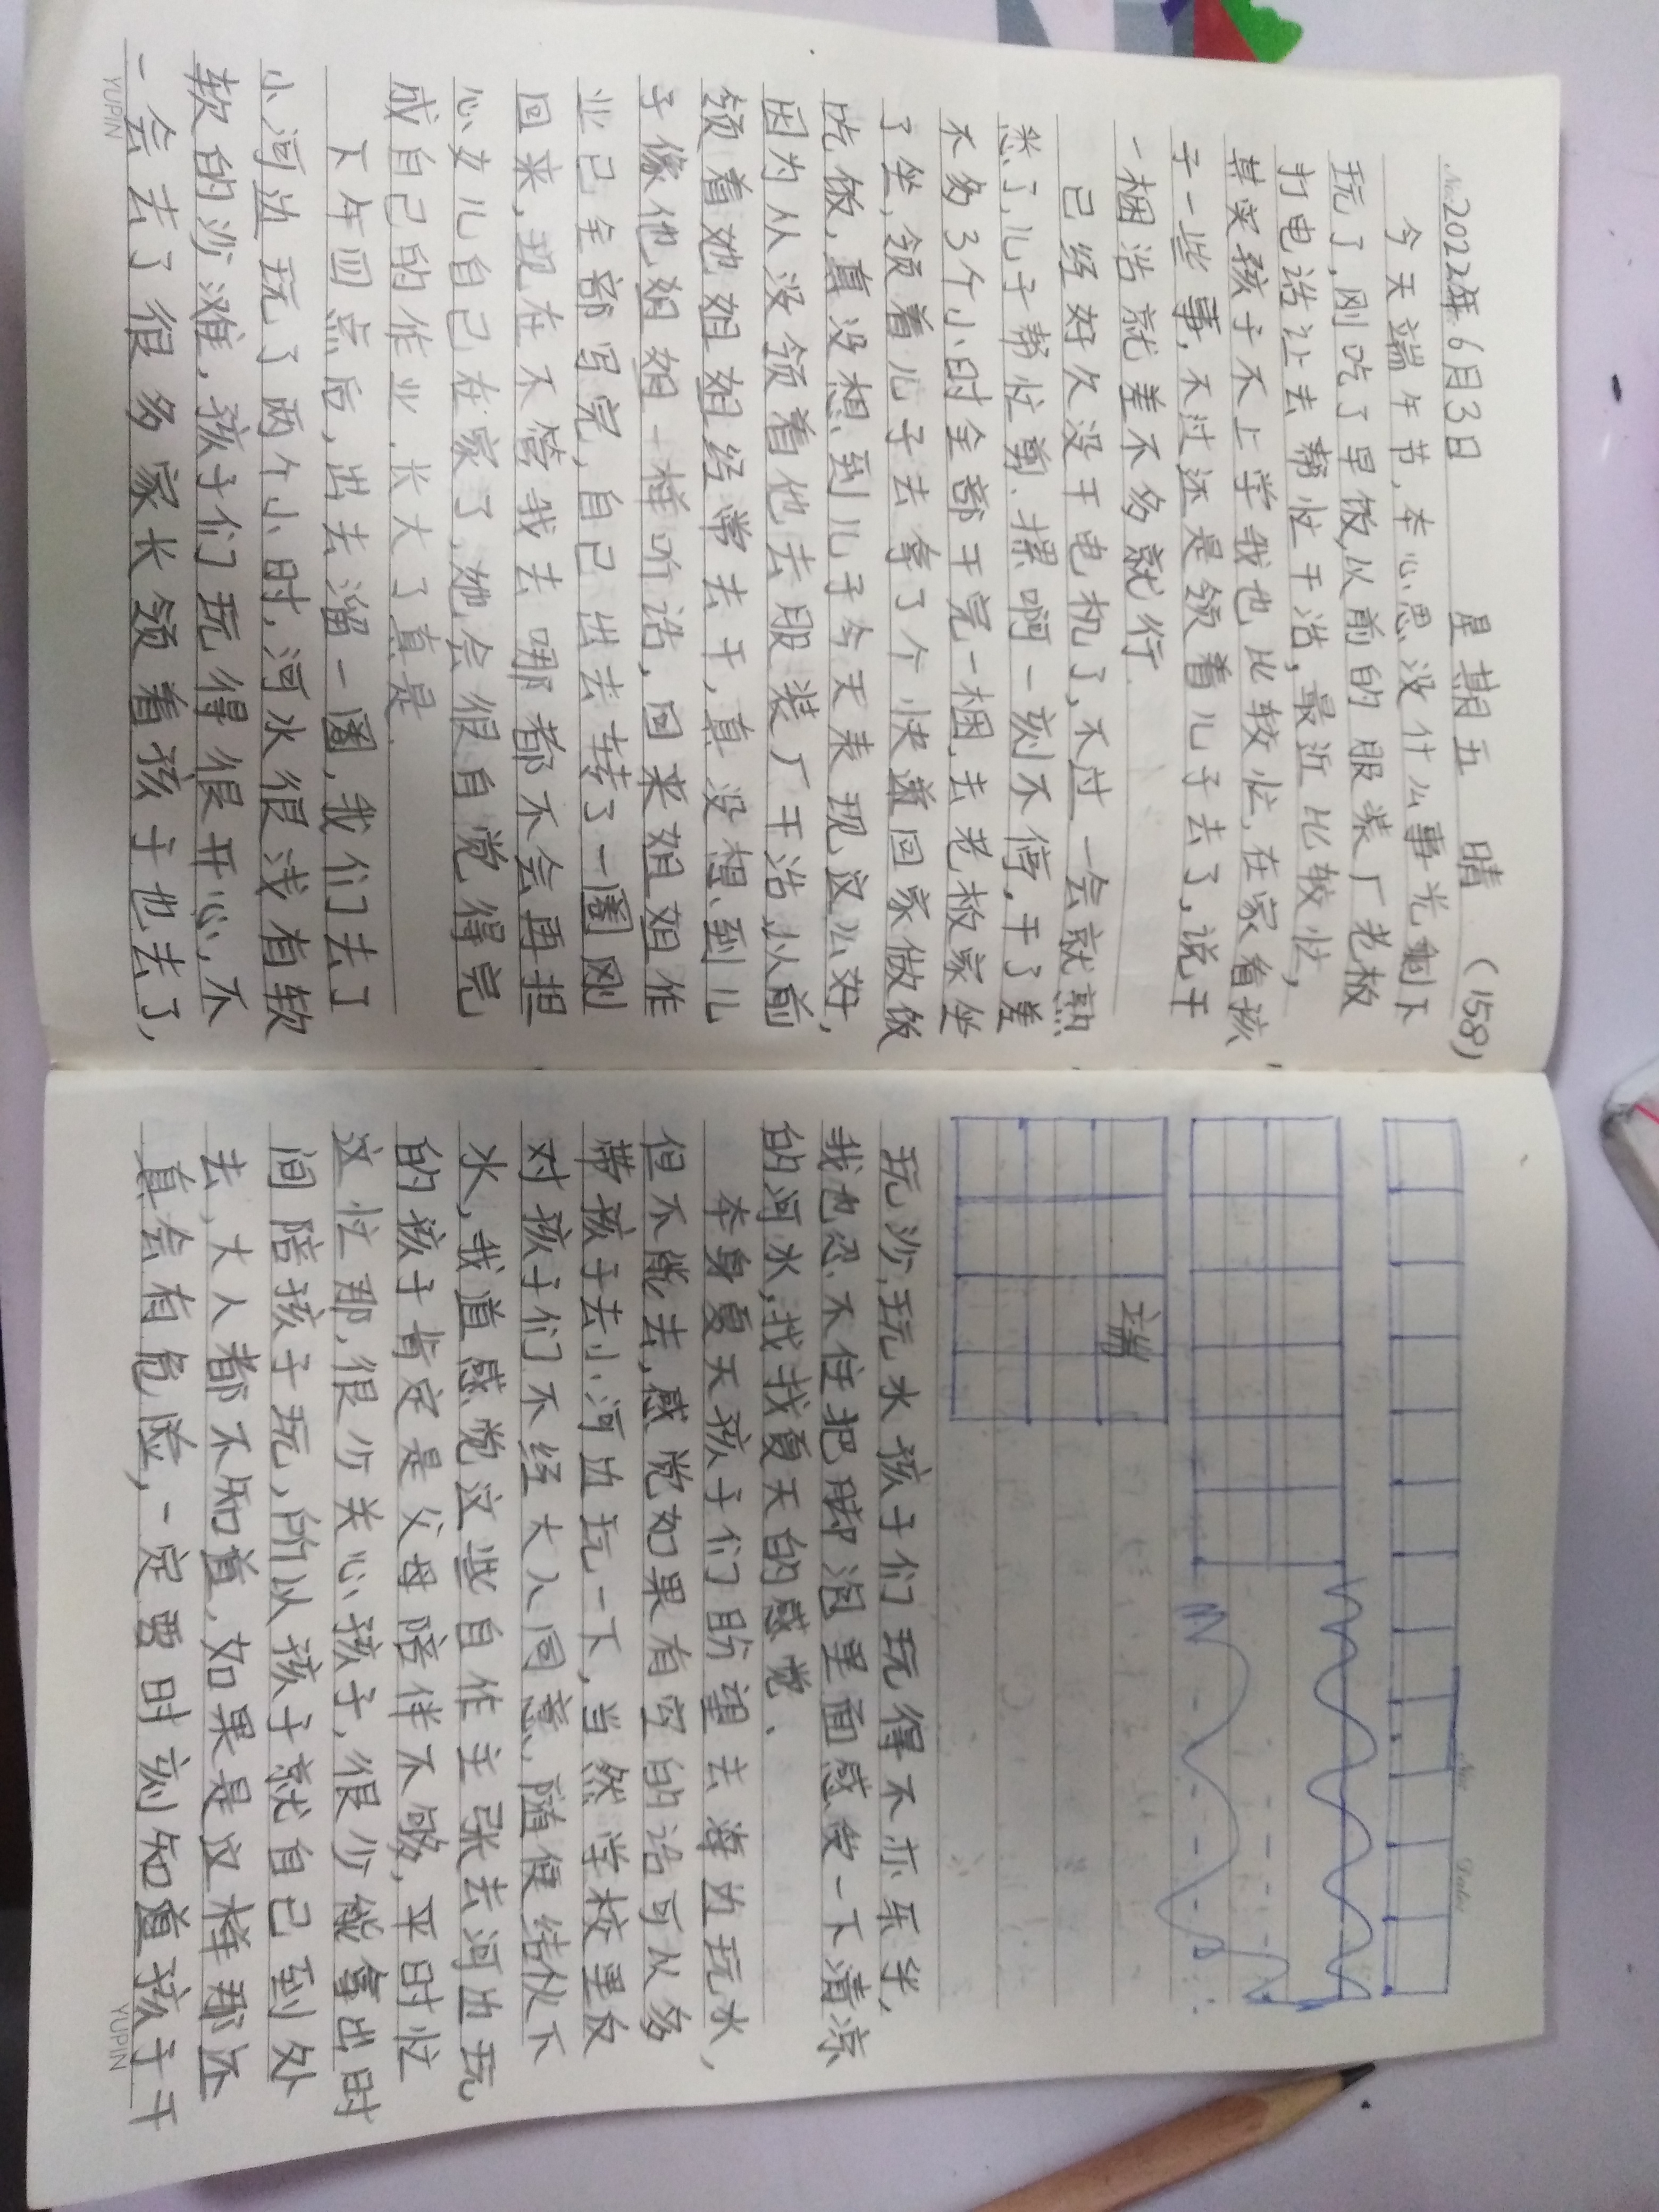 No. 2022年6月3日 星期五 晴 (158)
今天端午节,本心思没什么事光剩下
玩了,刚吃了早饭,从前的服装厂老板
打电话让去帮忙干活,最近比较忙,
其实孩子不上学我也比较忙,在家看孩
子一些事,不过还是领着儿子去了,说干
一捆活就差不多就行.
已经好久没干电机了,不过一会就熟
悉了,儿子帮忙剪.摞啊一刻不停,干了差
不多3个小时全部干完一捆,去老板家坐
了坐,领着儿子去拿了个快递回家做饭
吃饭,真没想到儿子今天表现这么好,
因为从没领着他去服装厂干活,从前
领着她姐姐经常去干,真没想到儿
子像他姐姐一样听话,回来姐姐作
业已全部写完,自己出去转了一圈刚
回来,现在不管我去哪都不会再担
心女儿自己在家了,她会很自觉得完
成自己的作业,长大了真是.
下午四点后,出去溜一圈,我们去了
小河边玩了两个小时,河水很浅有软
软的沙滩,孩子们玩得很开心,不
一会去了很多家长领着孩子也去了,
YUPIN
No:
Date:
端
玩沙,玩水孩子们玩得不亦乐乎,
我也忍不住把脚泡里面感受一下清凉
的河水,找找夏天的感觉.
本身夏天孩子们盼望去海边玩水,
但不能去,感觉如果有空的话可从多
带孩子去小河边玩一下,当然学校里反
对孩子们不经大人同意,随便结伙下
水,我道感觉这些自作主张去河边玩
的孩子肯定是父母陪伴不够,平时忙
这忙那,很少关心孩子,很少能拿出时
间陪孩子玩,所以孩子就自己到处
去,大人都不知道,如果是这样那还
真会有危险,一定要时刻知道孩子干
YUPIN